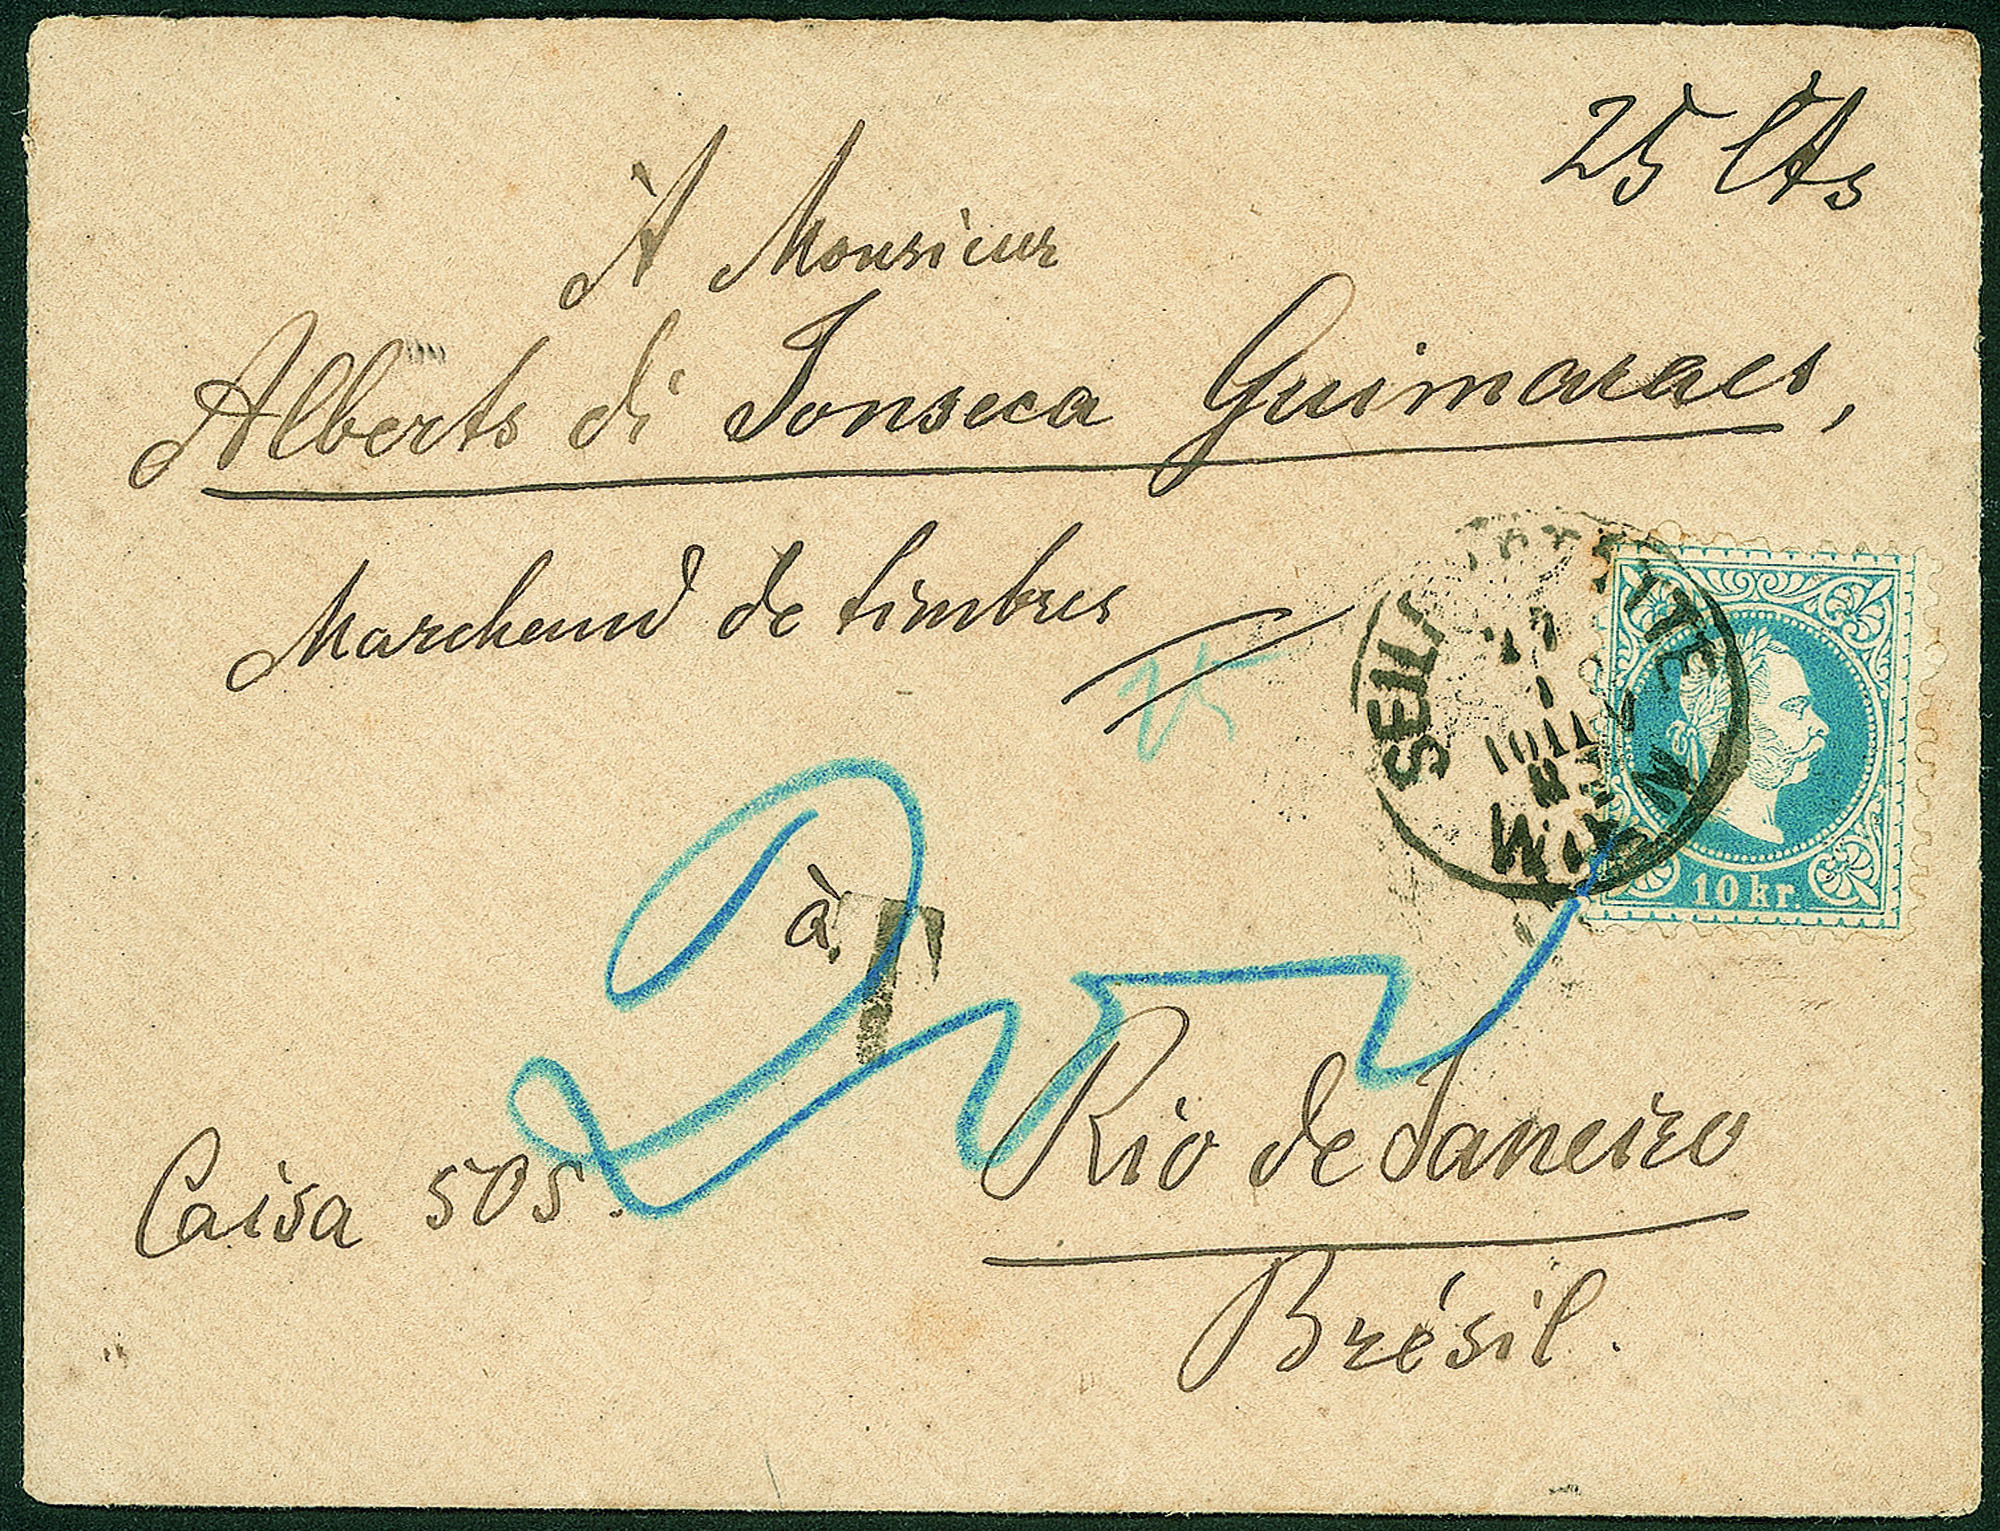 25 Cts
À Monsieur
Alberto di Fonseca Guimaraes,
Marchand de timbres
25
à
T
Rio de Janeiro
Caisa 505.
Brésil.
WIEN
10 kr.